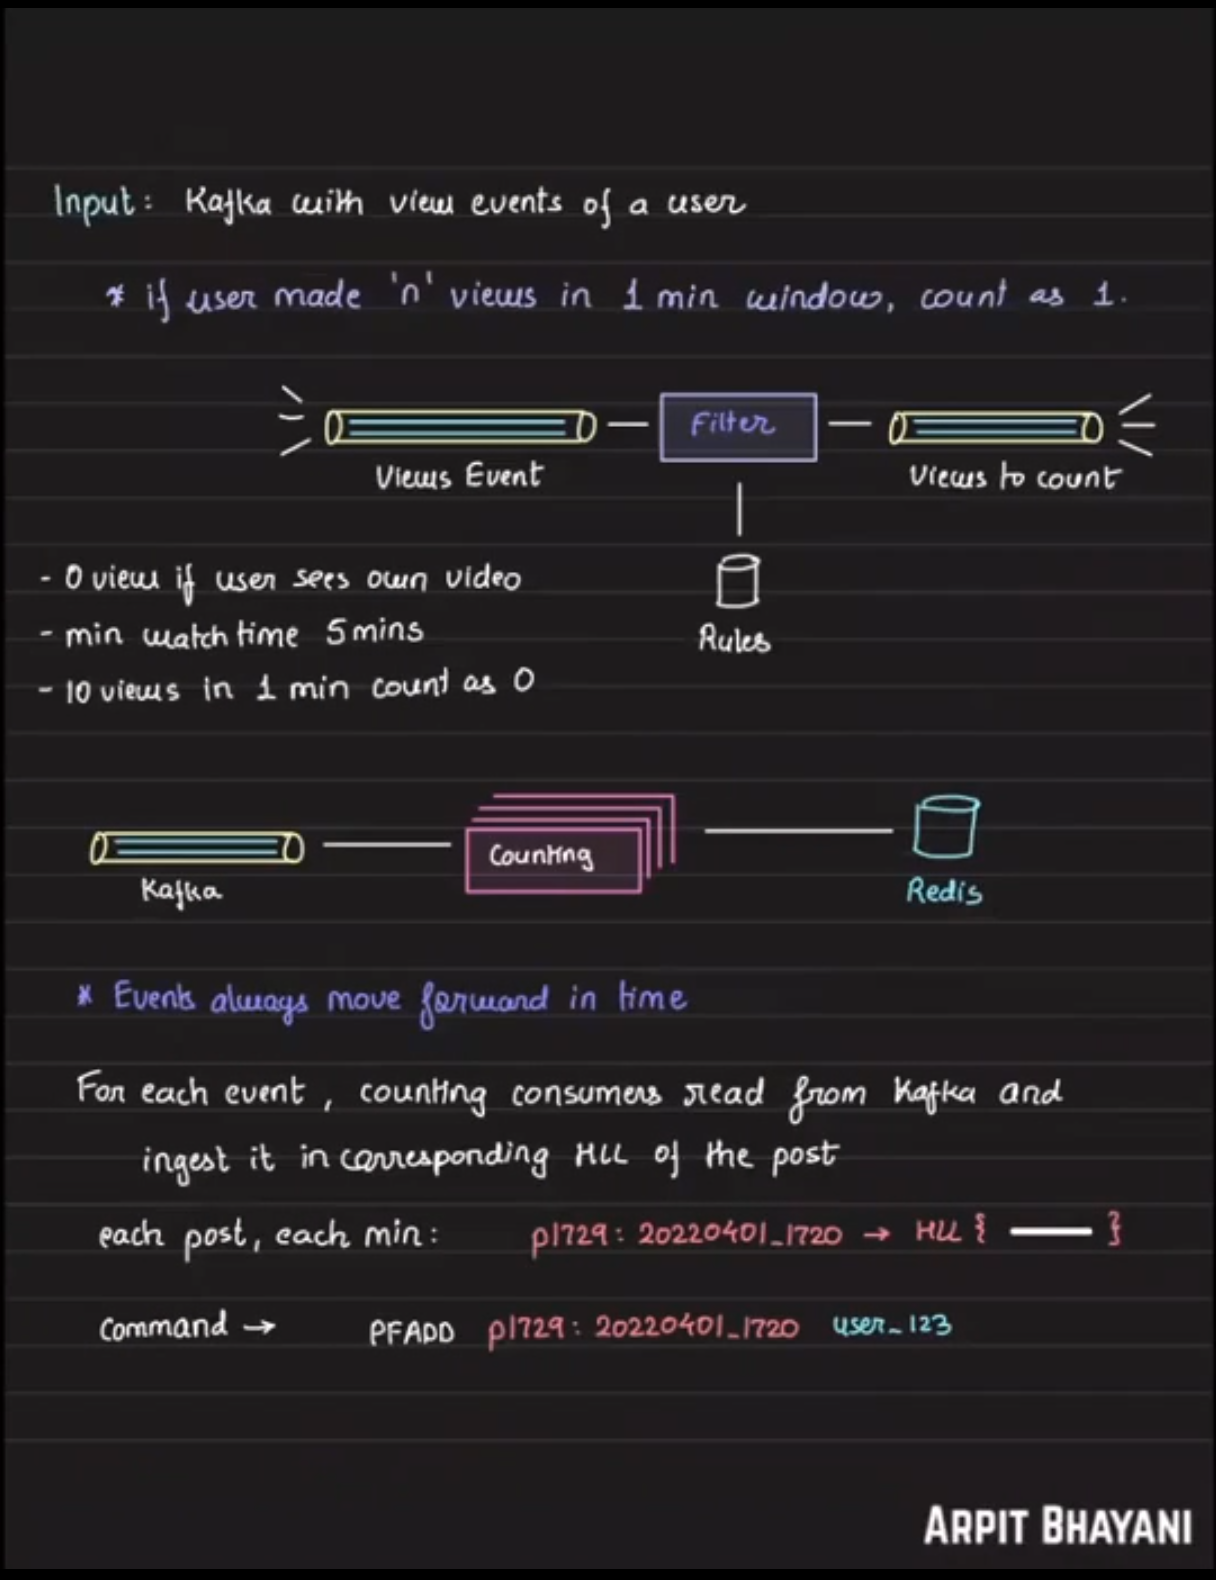 Input: Kafka with view events of a user
* if user made 'n' views in 1 min window, count as 1.
Filter
Views Event
Views to count
- 0 view if user sees own video
- min watch time 5 mins
- 10 views in 1 min count as 0
Rules
Counting
Kafka
Redis
* Events always move forward in time
For each event, counting consumers read from Kafka and
ingest it in corresponding HLL of the post
each post, each min: p1729: 20220401_1720 → HLL { }
command → PFADD p1729: 20220401_1720 user_123
ARPIT BHAYANI